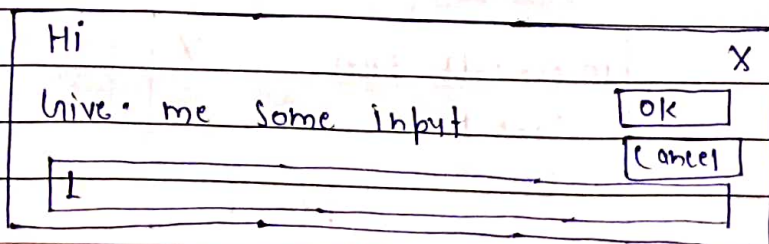 Hi
X
Give. me some input
OK
Cancel
I